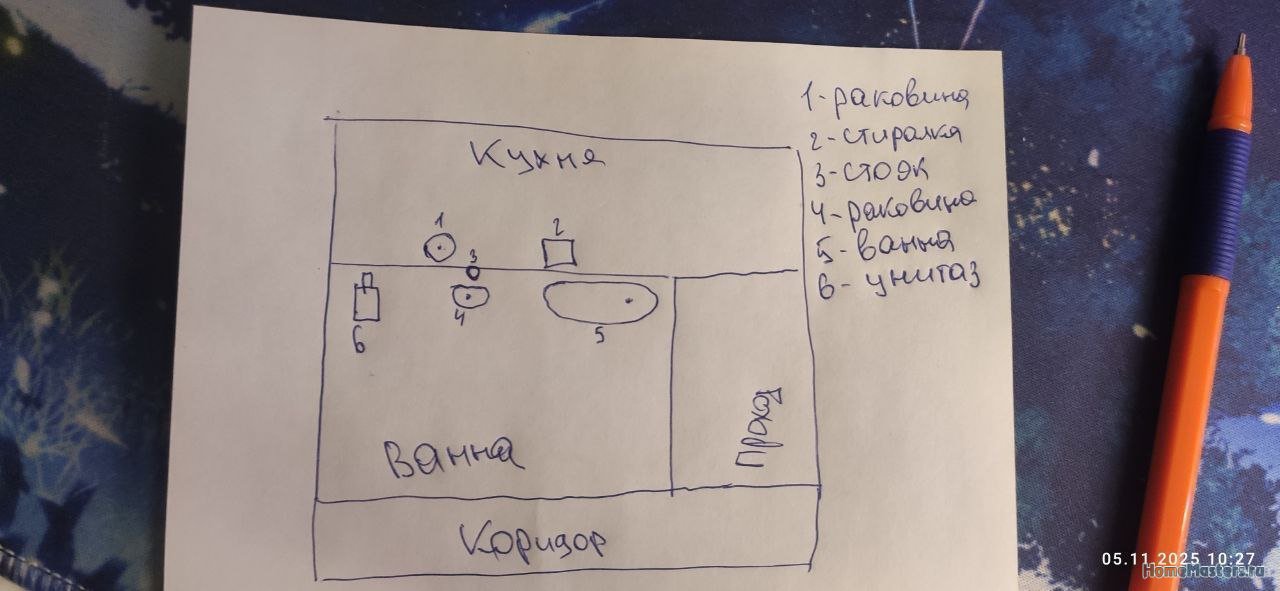 1-раковина
2-стиралка
3-стояк
4-раковина
5-ванна
6-унитаз
Кухня
1
2
3
4
5
6
Ванна
Проход
Коридор
05.11.2025 10:27
HomeMasters.ru